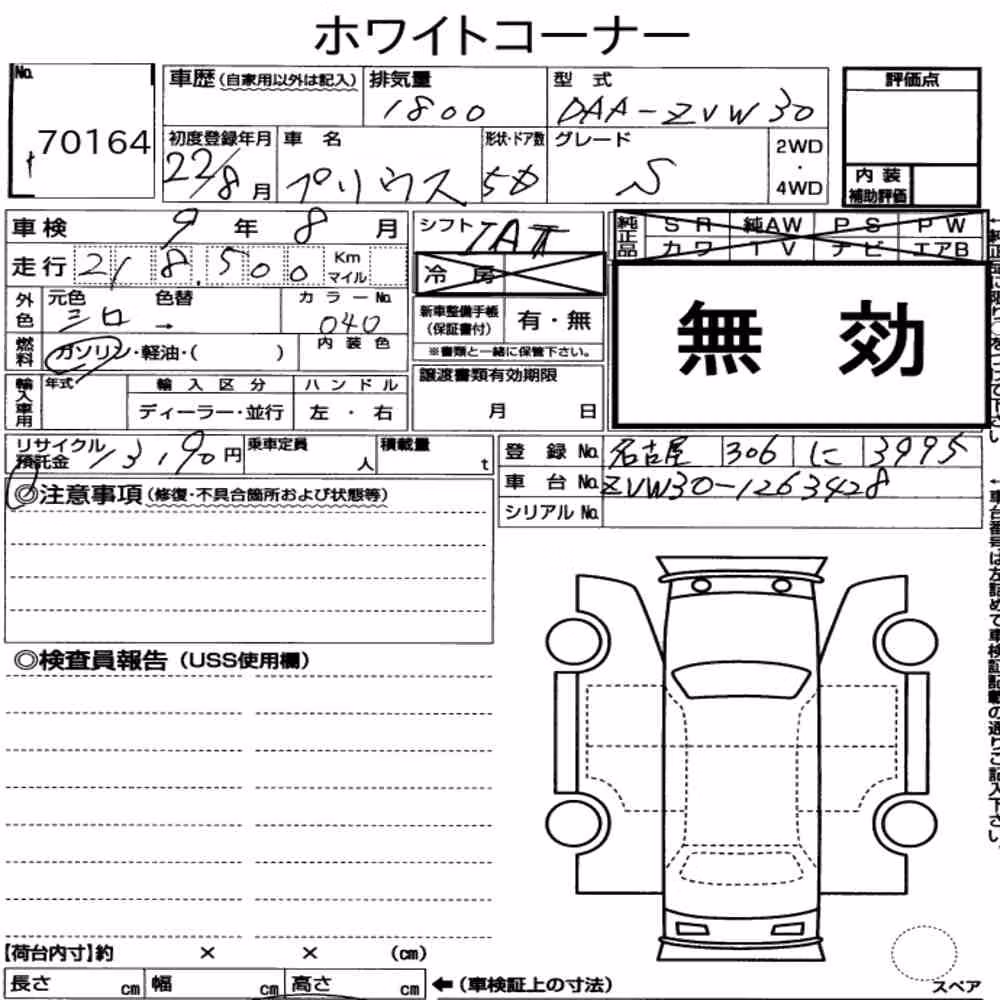 ホワイトコーナー
No. 70164
車歴 (自家用以外は記入)
排気量 1800
型式 DAA-ZVW30
評価点
初度登録年月 22/8月
車名 プリウス
形状・ドア数 5
グレード S
2WD・4WD
内装補助評価
車検 9年8月
シフト IAT
純正品 SR 純AW PS PW
カワ TV ナビ エアB
走行 218,500 Km マイル
冷房
無効
外色 元色 シロ 色替 → カラーNo. 040
新車整備手帳(保証書付) 有・無
※書類と一緒に保管下さい。
燃料 ガソリン・軽油・( )
内装色
輸入車用 年式 輸入区分 ハンドル
ディーラー・並行 左・右
譲渡書類有効期限
月 日
リサイクル預託金 13190円
乗車定員 人
積載量 t
登録No. 名古屋 306 に 3995
車台No. ZVW30-1263428
シリアルNo.
◎注意事項 (修復・不具合箇所および状態等)
◎検査員報告 (USS使用欄)
【荷台内寸】約 × × (cm)
長さ cm 幅 cm 高さ cm
←(車検証上の寸法)
スペア